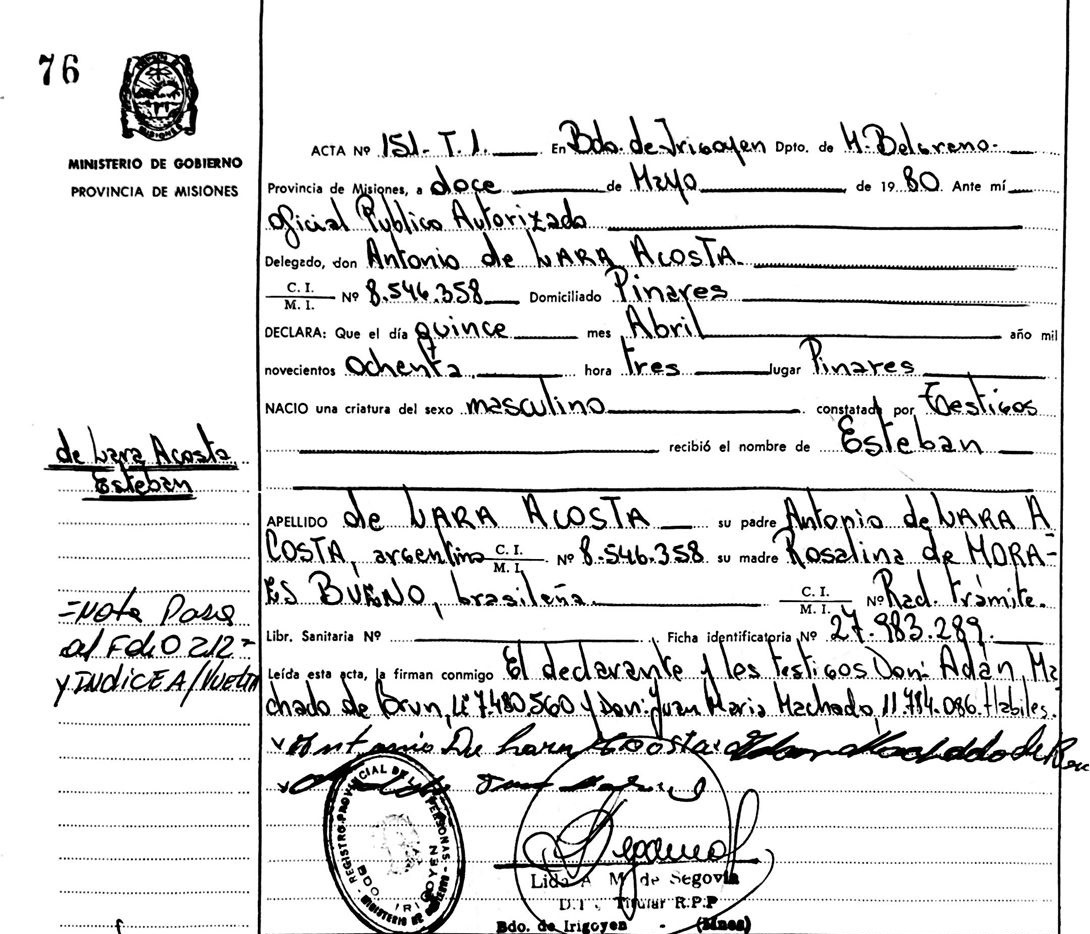 76
MISIONES
MINISTERIO DE GOBIERNO
PROVINCIA DE MISIONES
ACTA Nº 151- T. I. En Bdo. de Irigoyen Dpto. de M. Belgrano.
Provincia de Misiones, a doce de Mayo de 19 80 Ante mí
Oficial Publico Autorizado
Delegado, don Antonio de LARA ACOSTA.
C. I.
M. I. Nº 8.546.358 Domiciliado Pinares
DECLARA: Que el día quince mes Abril año mil
novecientos ochenta. hora tres lugar Pinares
NACIO una criatura del sexo masculino constatada por testigos
recibió el nombre de Esteban
de Lara Acosta
Esteban
APELLIDO de LARA ACOSTA su padre Antonio de LARA A
COSTA, argentino C. I.
M. I. Nº 8.546.358 su madre Rosalina de MORA-
ES BUENO, brasileña. C. I.
M. I. Nº Rad. trámite.
Libr. Sanitaria Nº Ficha identificatoria Nº 27.983.289.
=Nota Pasa
al Folio 212=
y INDICE A/VUELTA
Leída esta acta, la firman conmigo El declarante y los testigos Don: Adán, Ma
chado de Brun, LE 7.480.560 y Don: Juan Maria Machado, 11.714.086. Habiles.
Antonio De Lara Acosta
REGISTRO PROVINCIAL DE LAS PERSONAS
BDO. IRIGOYEN
MINISTERIO DE GOBIERNO
Lida A M. de Segovia
Titular R.P.P
Bdo. de Irigoyen - (Mnes)